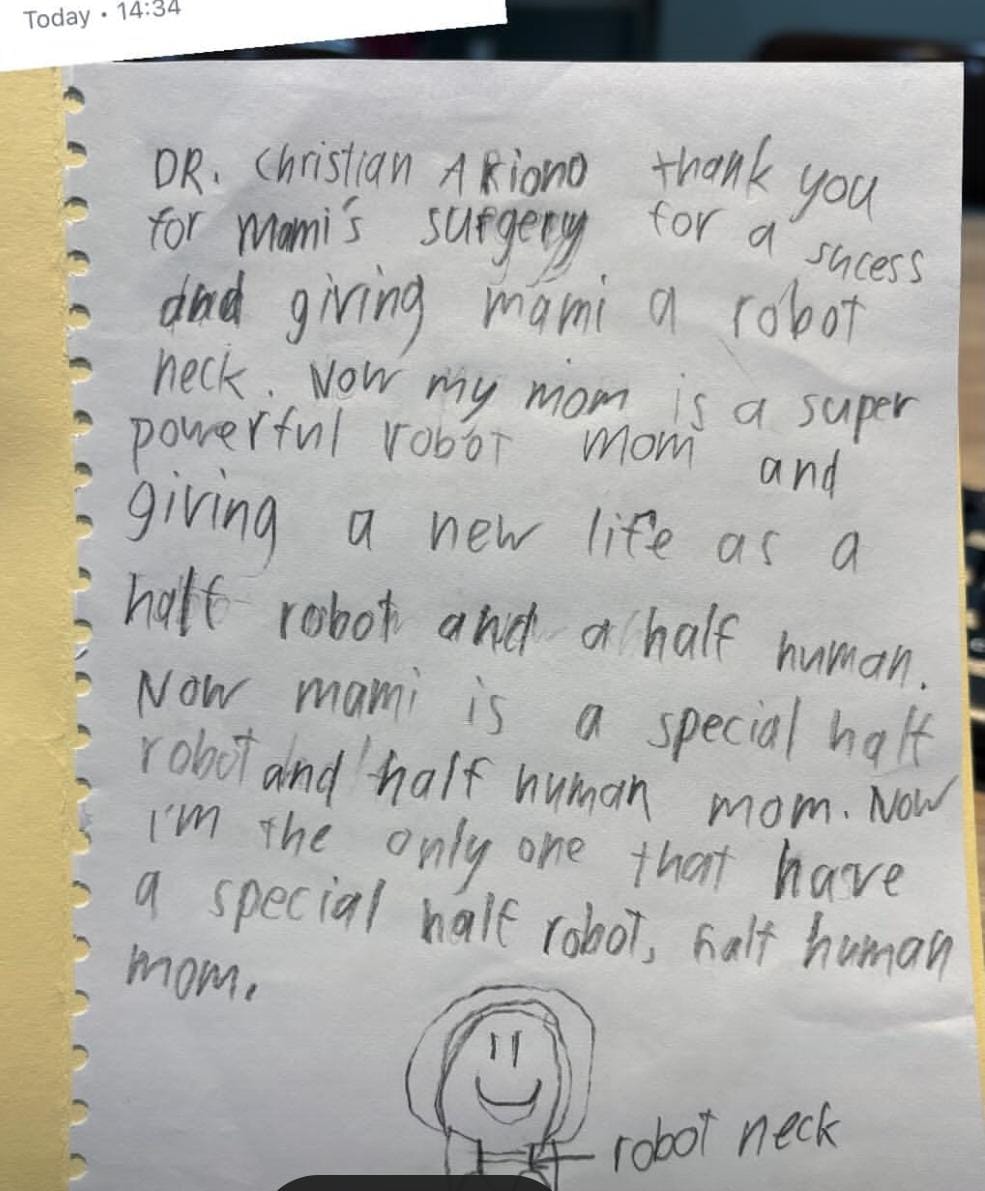 Today • 14:34
DR. Christian Ariono thank you
for Mami's surgery for a sucess
and giving mami a robot
neck. Now my mom is a super
powerful robot mom and
giving a new life as a
half robot and a half human.
Now mami is a special half
robot and half human mom. Now
I'm the only one that have
a special half robot, half human
mom.
robot neck